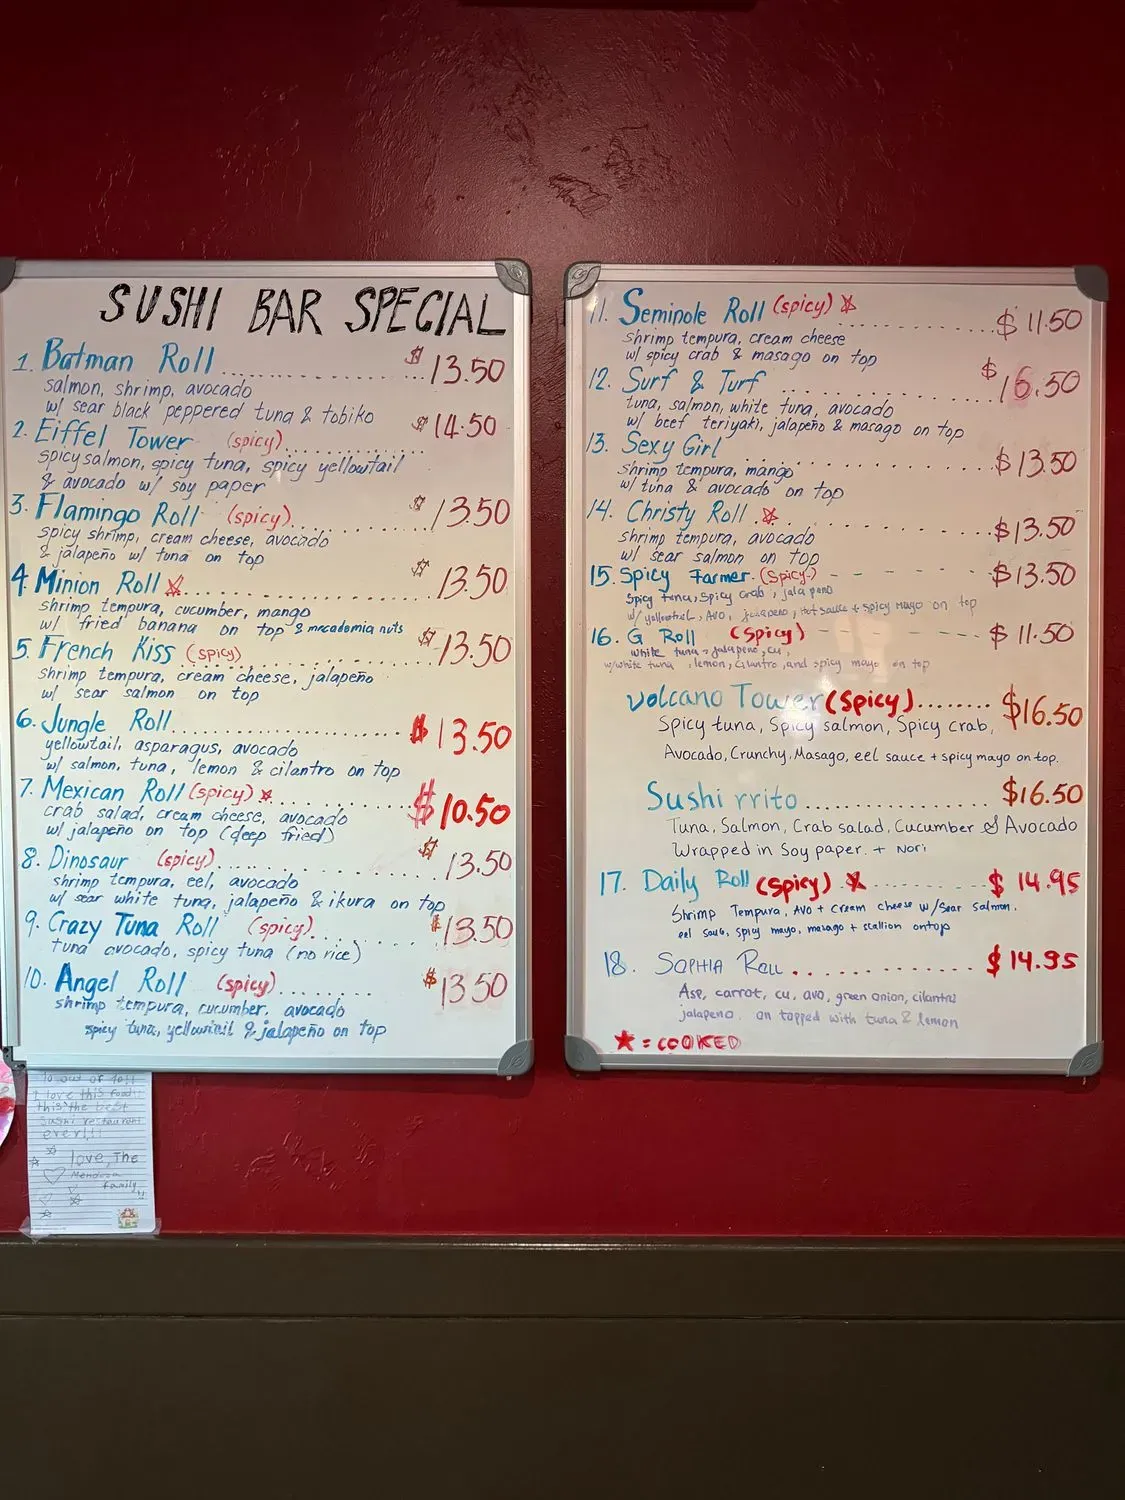 SUSHI BAR SPECIAL
1. Batman Roll ............ $ 13.50
salmon, shrimp, avocado
w/ sear black peppered tuna & tobiko
2. Eiffel Tower (spicy) ............ $ 14.50
spicy salmon, spicy tuna, spicy yellowtail
& avocado w/ soy paper
3. Flamingo Roll (spicy) ............ $ 13.50
spicy shrimp, cream cheese, avocado
& jalapeño w/ tuna on top
4. Minion Roll ☆ ............ $ 13.50
shrimp tempura, cucumber, mango
w/ fried banana on top & macadamia nuts
5. French Kiss (spicy) ............ $ 13.50
shrimp tempura, cream cheese, jalapeño
w/ sear salmon on top
6. Jungle Roll ............ $ 13.50
yellowtail, asparagus, avocado
w/ salmon, tuna, lemon & cilantro on top
7. Mexican Roll (spicy) ★ ............ $ 10.50
crab salad, cream cheese, avocado
w/ jalapeño on top (deep fried)
8. Dinosaur (spicy) ............ $ 13.50
shrimp tempura, eel, avocado
w/ sear white tuna, jalapeño & ikura on top
9. Crazy Tuna Roll (spicy) ............ $ 13.50
tuna avocado, spicy tuna (no rice)
10. Angel Roll (spicy) ............ $ 13.50
shrimp tempura, cucumber, avocado
spicy tuna, yellowtail & jalapeño on top
11. Seminole Roll (spicy) ☆ ............ $ 11.50
shrimp tempura, cream cheese
w/ spicy crab & masago on top
12. Surf & Turf ............ $ 16.50
tuna, salmon, white tuna, avocado
w/ beef teriyaki, jalapeño & masago on top
13. Sexy Girl ............ $ 13.50
shrimp tempura, mango
w/ tuna & avocado on top
14. Christy Roll ☆ ............ $ 13.50
shrimp tempura, avocado
w/ sear salmon on top
15. Spicy Farmer (Spicy) ............ $ 13.50
Spicy tuna, Spicy crab, jalapeno
w/ yellowtail, AVO, jalapeno, Hot sauce + spicy mayo on top
16. G Roll (Spicy) ............ $ 11.50
white tuna, jalapeno, cu,
w/white tuna, lemon, cilantro, and spicy mayo on top
Volcano Tower (Spicy) ............ $16.50
Spicy tuna, Spicy salmon, Spicy crab,
Avocado, Crunchy, Masago, eel sauce + spicy mayo on top.
Sushi rrito ............ $16.50
Tuna, Salmon, Crab salad, Cucumber & Avocado
Wrapped in Soy paper. + Nori
17. Daily Roll (Spicy) ★ ............ $ 14.95
Shrimp Tempura, AVO + Cream cheese w/Sear Salmon.
eel saus, spicy mayo, masago + scallion ontop
18. SOPHIA ROLL ............ $ 14.95
Asp, carrot, cu, avo, green onion, cilantro
jalapeno, on topped with tuna & lemon
★ = COOKED
I love this food
this the best
sushi restaurant
ever!!!
love, The
Mendoza
family